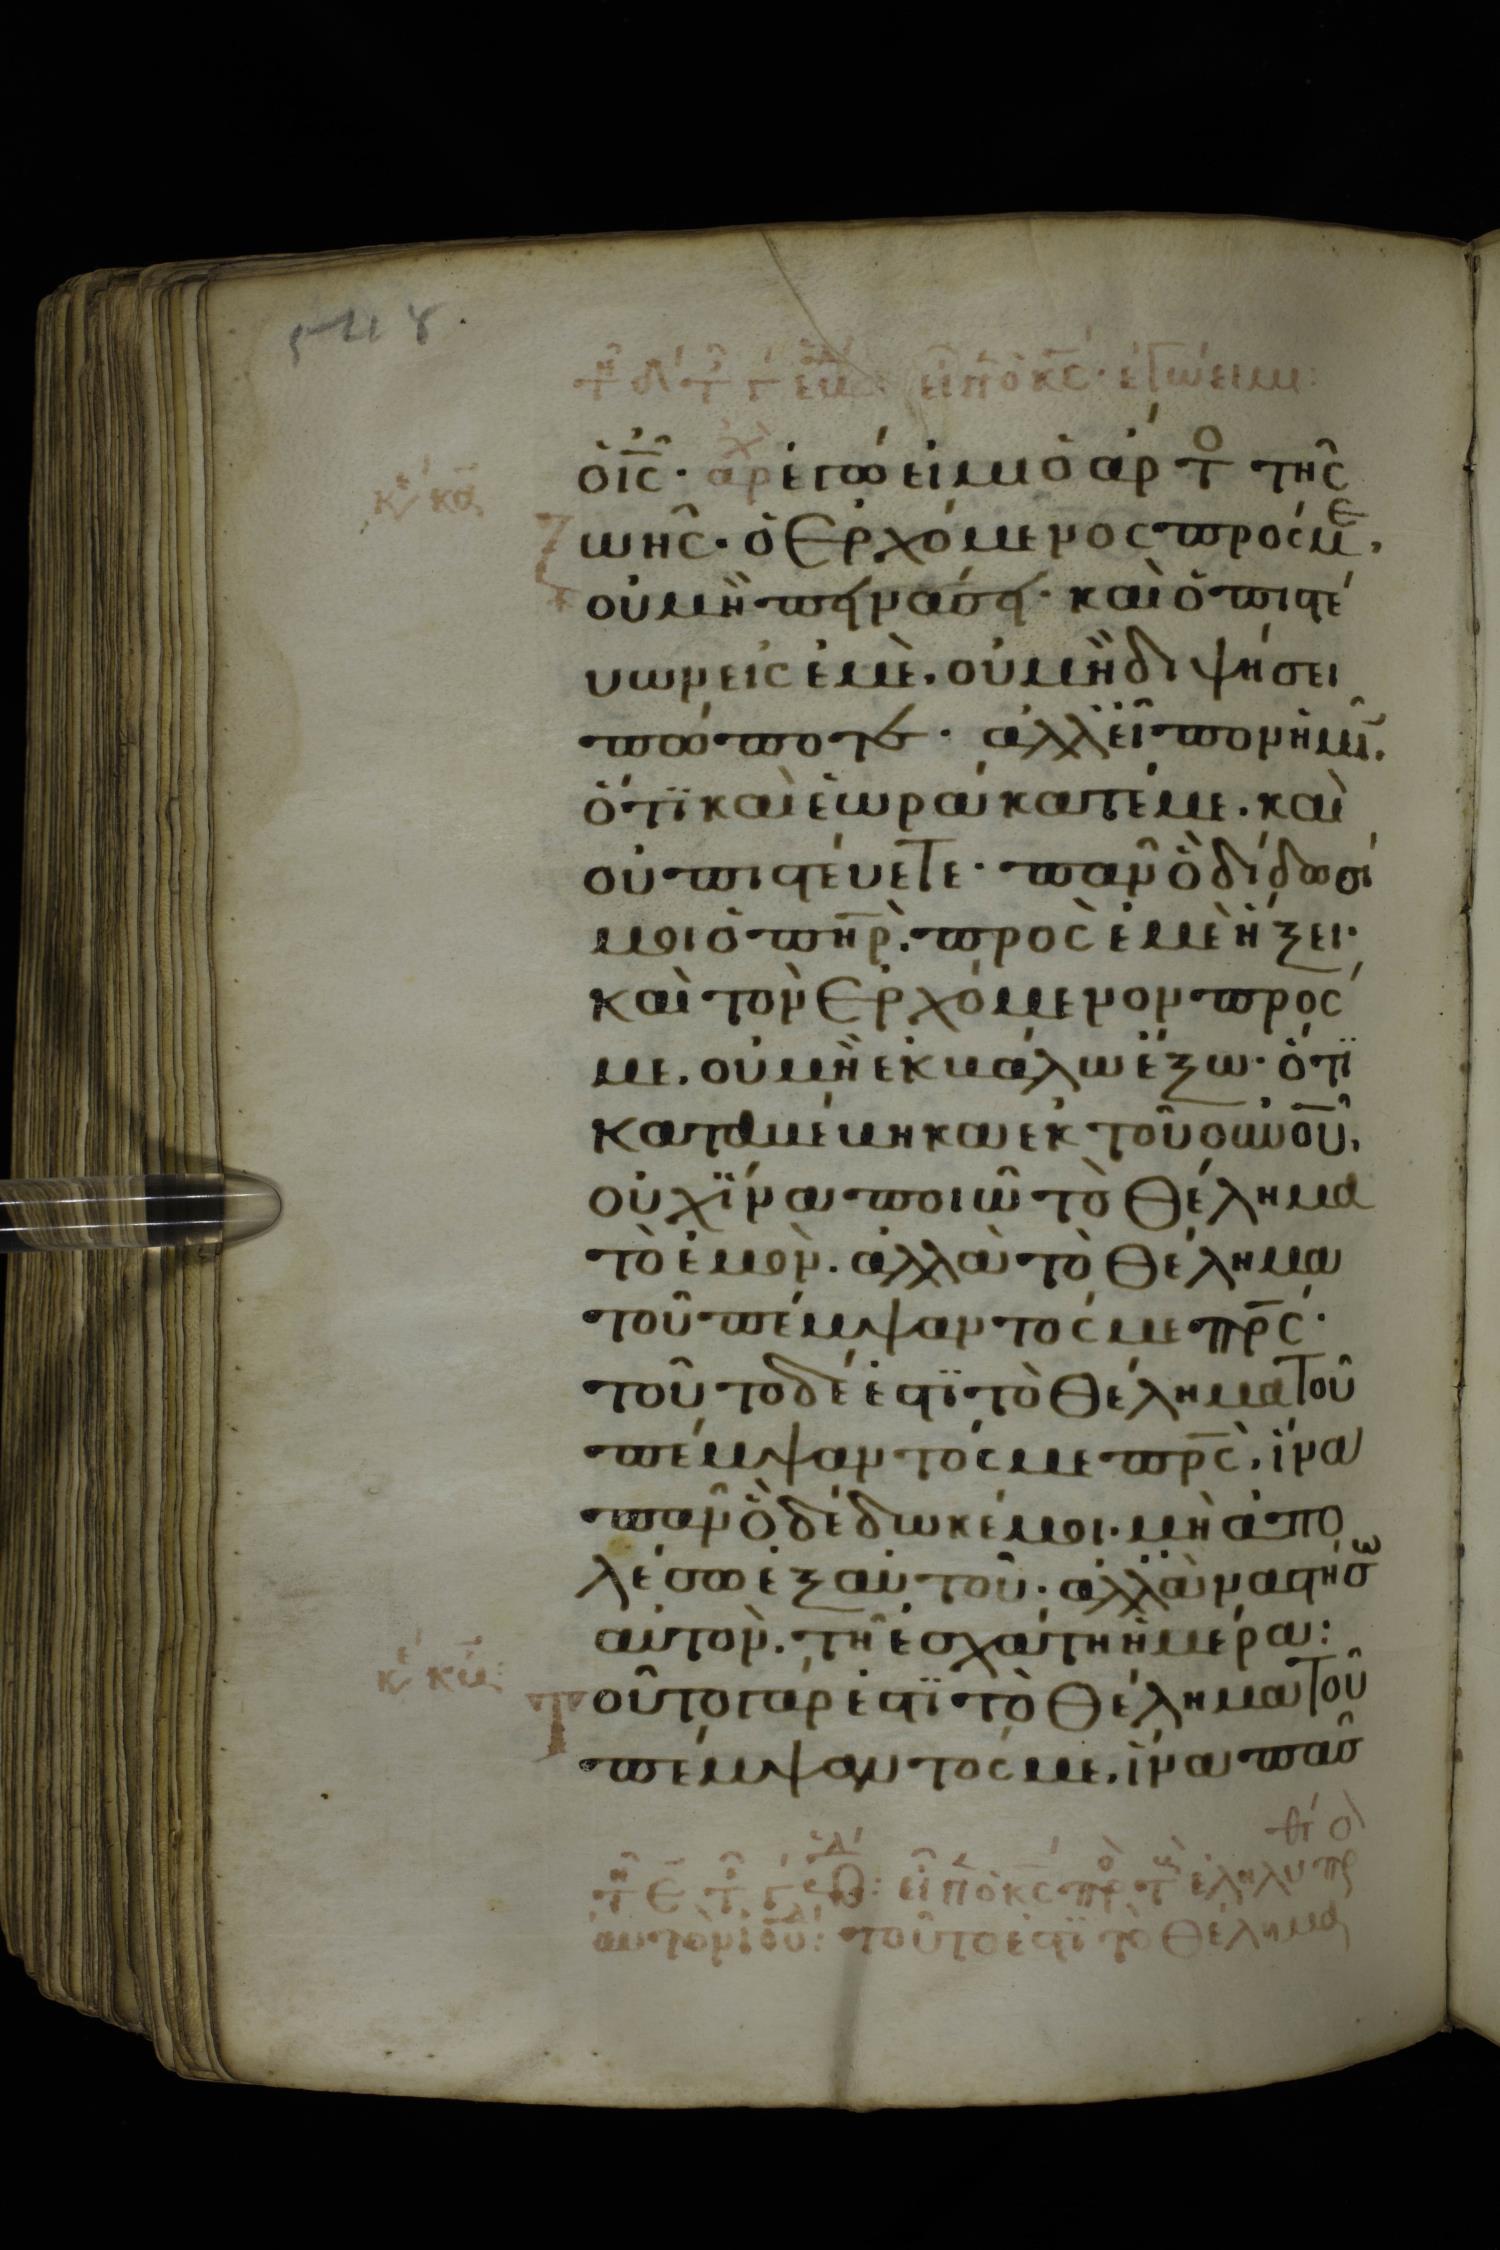 εἶπ ὁ κς· ἐγώ ειμι:
ὁ ις̅· ἐγώ εἰμι ὁ ἄρτο τῆς
κε κα
ζωῆς· ὁ ἐρχόμενος πρός με,
οὐ μὴ πεινάσει· καὶ ὁ πιστέ
υων εἰς ἐμὲ. οὐ μὴ διψήσει
πώποτε· ἀλλ εἶπον ὑμῖν.
ὅτϊ καὶ ἑωράκατέ με. καὶ
οὐ πιστεύετε· πᾶν ὃ δίδωσί
μοι ὁ πη̅ρ. πρὸς ἐμὲ ἥξει·
καὶ τὸν ἐρχόμενον πρός
με. οὐ μὴ ἐκβάλω ἔξω· ὅτϊ
καταβέβηκα ἐκ τοῦ ουνου̅,
οὐχ ϊνα ποιῶ τὸ θέλημα
τὸ ἐμὸν. ἀλλὰ τὸ θέλημα
τοῦ πέμψαντός με πρ̅ς·
τοῦτο δέ ἐστϊ τὸ θέλημα τοῦ
πέμψαντός με πρ̅ς, ἵνα
πᾶν ὃ δέδωκέ μοι. μὴ ἀπο
λέσω ἐξ αὐτοῦ· ἀλλὰ ἀναστήσω
αὐτὸν. τῇ ἐσχάτη ἡμέρα:
κε κβ:
Τοῦτο γάρ ἐστϊ τὸ θέλημα τοῦ
πέμψαντός με, ἵνα πᾶς
εἶπ ὁ κς πρ τ ἐληλυ πρ
αυτὸν ιου: τοῦτο ἐστϊ τὸ θέλημα